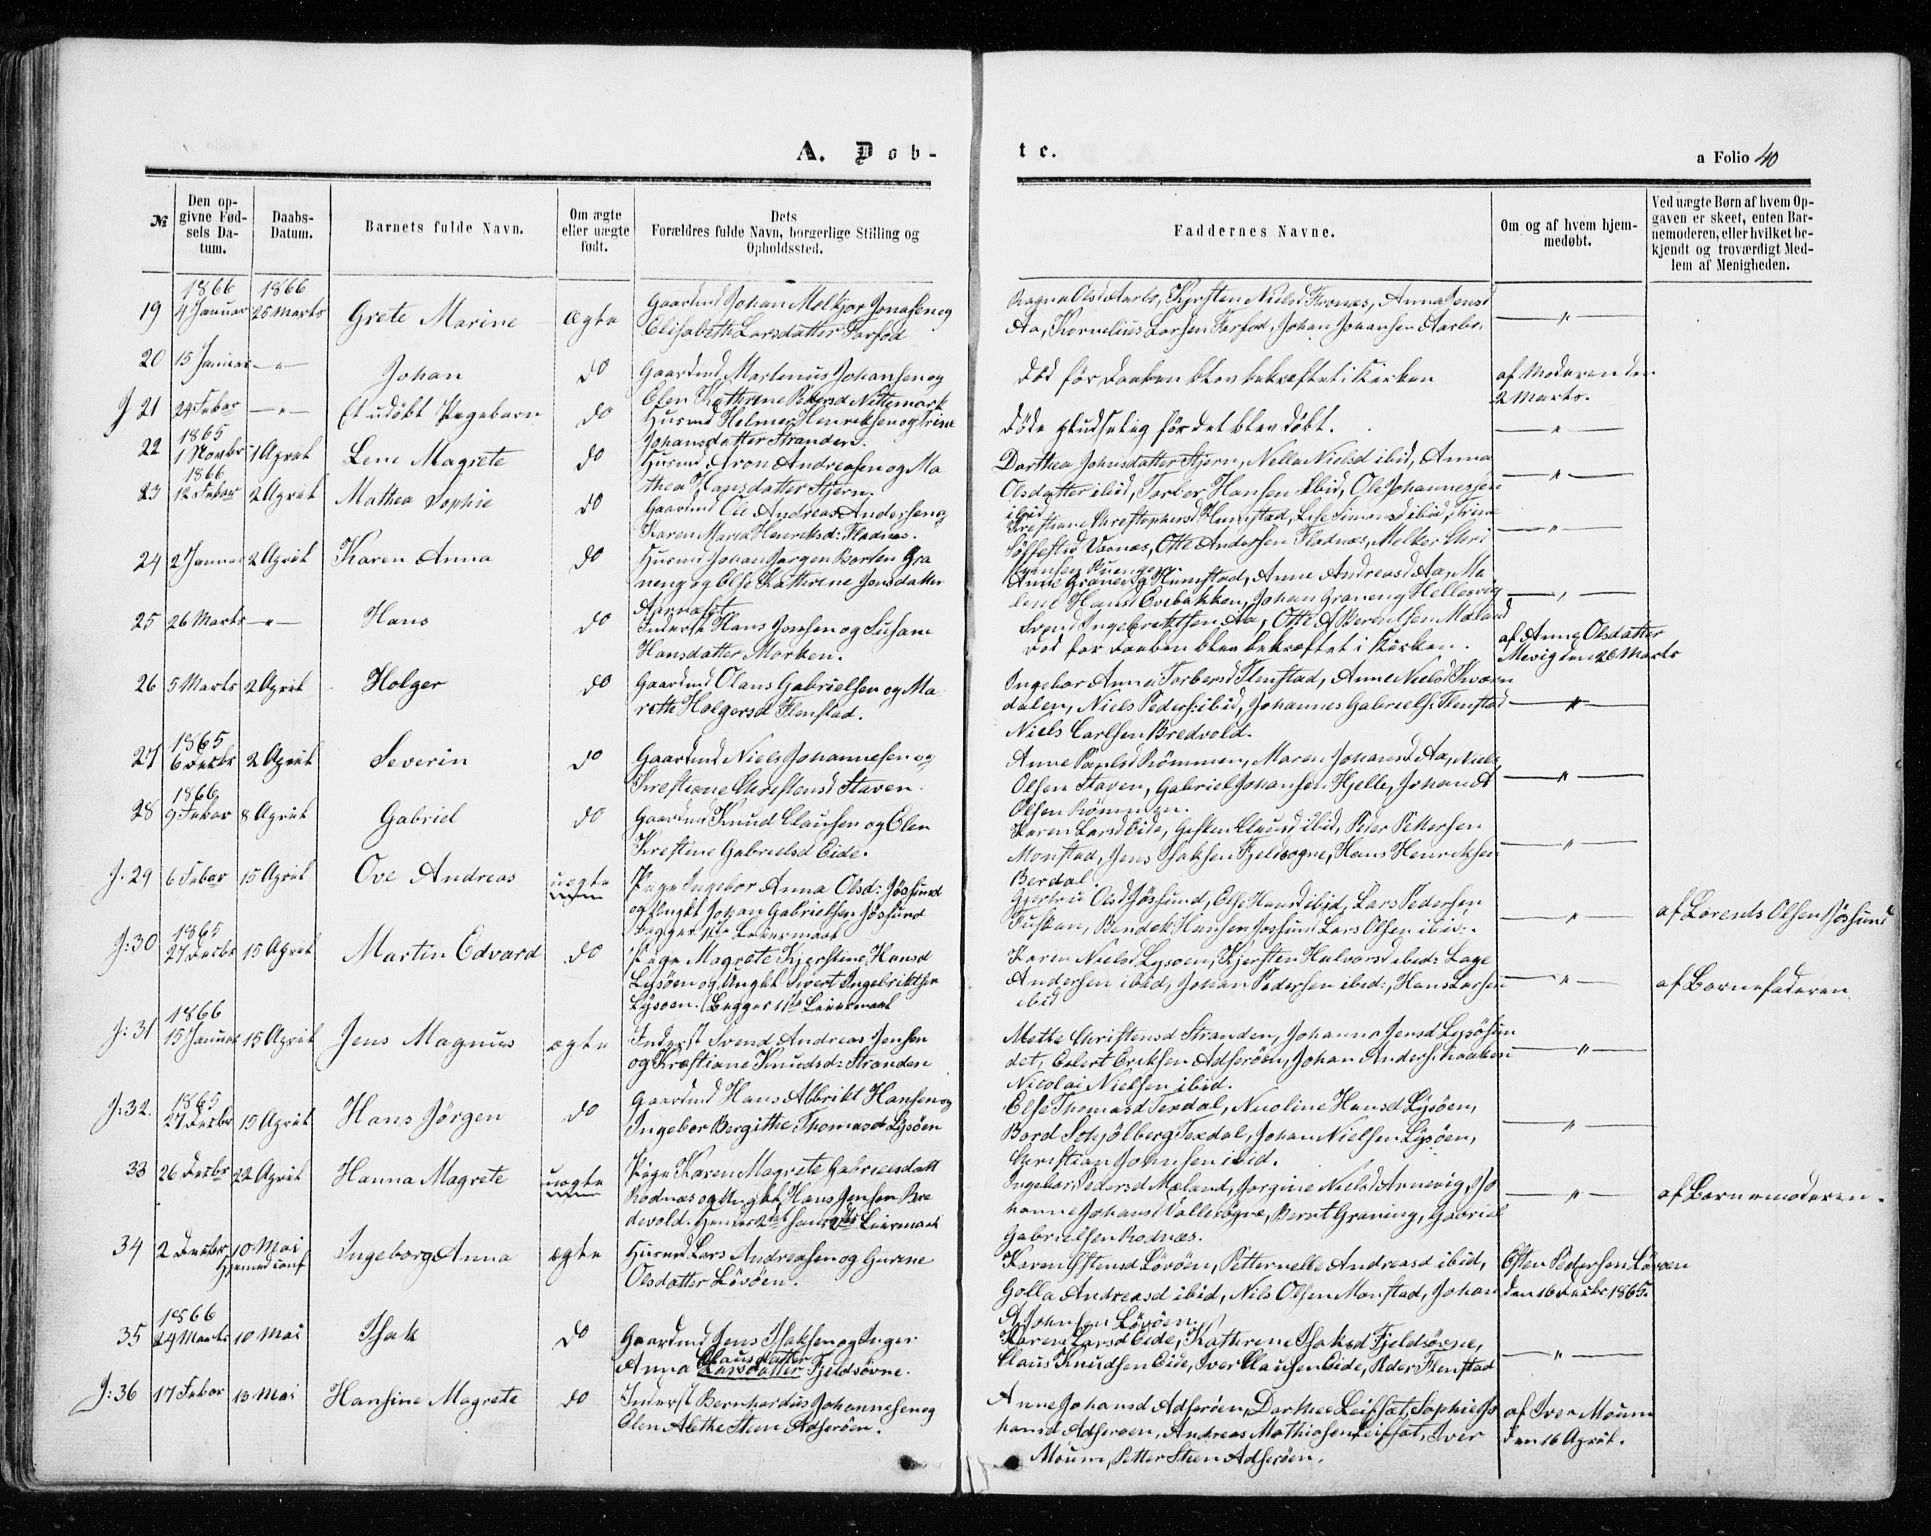 A. Døb-
te.
a Folio 40
№
Den op-
givne Fød-
sels Da-
tum.
Daabs-
Datum.
Barnets fulde Navn.
Om ægte
eller uægte
født.
Dets
Forældres fulde Navn, borgerlige Stilling og
Opholdssted.
Faddernes Navne.
Om og af hvem hjem-
medøbt.
Ved uægte Børn af hvem Op-
gaven er skeet, enten Bar-
nemoderen, eller hvilket be-
kjendt og troværdigt Med-
lem af Menigheden.
1866 1866
19 4 Januar 25 Marts Grete Marine Ægte
Gaardmd Johan Melkjor Jonasen og
Elisabeth Larsdatter Farfod
Ragna Olsd Aarbo, Kjersten Nielsd, Anna Jensd
Aa, Kornelius Larsen Farfod, Johan Johansen Aarbo.
20 15 Januar —"— Johan do
Gaardmd Martenus Johansen og
Elen Kathrine Pedersd Nettemark
Død før Daaben blev bekræftet i Kirken
af Moderen den
2 Marts.
J 21 24 Febar —"— Et udøbt Pigebarn do
Husmd Helmer Henriksen og Trine
Johansdatter Stranden.
Døde pludselig før det blev døbt.
1865
22 1 Novbr 1 April Lene Magrete do
Husmd Aron Andreasen og Ma
thea Hansdatter Stjern.
Dorthea Johnsdatter Stjern, Nella Nielsd ibid, Anna
Olsdatter ibid, Torber Hansen ibid, Ole Johannessen
ibid
1866
23 12 Febar 2 April Mathea Sophie do
Gaardmd Ole Andreas Andersen og
Karen Maria Henriksd: Fladnæs.
Krestiane Christophersd Humstad, Lise Simonsd ibid, Trine
Vaenæs, Otte Andersen Fladnæs, Melker Chri
24 2 Januar 2 April Karen Anna do
Husmd Johan Jørgen Barten Gra
neng og Else Kathrine Jensdatter
Anne Graneng Humstad, Anne Andreasd Aa, Ma
lene Hansd Evebakken, Johan Graneng Hellesvig
Svend Ingebriktsen Aa, Otte A Berentsen Mæland
25 26 Marts —"— Hans do
Inderst Hans Jensen og Susann
Hansdatter Morken.
Død før Daaben blev bekræftet i Kirken.
af Anne Olsdatter
Mevig den 26 Marts
26 5 Marts 2 April Holger do
Gaardmd Olaus Gabrielsen og Ma
rethe Holgersd Flenstad.
Ingebor Anna Torbersd Flenstad, Anne Nielsd Kværn
dalen, Niels Peders: ibid, Johannes Gabriels: Flenstad
Niels Carlsen Bredvold.
1865
27 6 Decbr 2 April Severin do
Gaardmd Niels Johannesen og
Krestiane Christensd Staven.
Anne Paulsd Rømmen, Maren Johansd Aa, Niels
Olsen Staven, Gabriel Johansen Hjelle, Johan A
Olsen Rømmen.
1866
28 9 Febar 8 April Gabriel do
Gaardmd Knud Clausen og Elen
Krestine Gabrielsd Eide.
Karen Larsd Eide, Clausd ibid, Peder Pettersen
Monstad, Jens Isaksen Fjeldsøgne, Hans Henriksen
Berdal
J. 29 6 Febar 15 April Ove Andreas uægte
Pige Ingebor Anna Olsd: Jøssund
og Ungkt Johan Gabrielsen Jøssund
Begges 1ste Leiermaal
Gjertru Olsd Jøssund, Else Hansd ibid, Lars Pedersen
Tuskan, Bendek Hansen Jøssund Lars Olsen ibid:.
af Lorents Olsen Jøssund
1865
J: 30 27 Decbr 15 April Martin Edvard do
Pige Magrete Kjerstine Hansd
Lysøen og Ungkt Sivert Ingebriktsen
Lysøen. Begges 1ste Leiermaal
Karen Nielsd Lysøen, Kjersten Halvorsd ibid: Lage
Andersen ibid, Johan Pedersen ibid:, Hans Larsen
ibid
af Barnefaderen
1866
J: 31 15 Januar 15 April Jens Magnus ægte
Inderst Svend Andreas Jensen
og Kræstiane Knudsd: Stranden
Mette Christensd Stranden, Johanna Jensd Lysøsun
det, Eilert Eriksen Adserøen, Johan Anders:
Nicolai Nielsen ibid.
1865
J: 32. 27 Decbr 15 April Hans Jørgen do
Gaardmd Hans Albrikt Hansen og
Ingebor Bergithe Thomasd Lysøen
Else Thomasd Texdal, Nicoline Hansd Lysøen,
Bard Schjølberg Texdal, Johan Nielsen Lysøen,
Christian Johnsen ibid.
33 26 Decbr 22 April Hanna Magrete uægte
Pige Karen Magrete Gabrielsdatt
Rodnæs og Ungkt Hans Jensen Bre
devold. Hendes 2det hans 2det Leiermaal
Ingebor Pedersd Mæland, Jorgine Nielsd Arnevig, Jo
hanne Johansd Vallersøgne, Bernt Graning, Gabriel
Gabrielsen Rodnæs.
af Barnemoderen.
34 2 Decbr 10 Mai Ingeborg Anna ægte
Hjemmed conf
Husmd Lars Andreasen og Gurine
Olsdatter Løvøen.
Karen Estensd Løvøen, Petternelle Andreasd ibid,
Golla Andreasd ibid, Nils Olsen Monstad, Johan
Johnsen Løvøen.
Esten Pedersen Løvøen
den 16 Decbr 1865.
1866
35 29 Marts 10 Mai Isak do
Gaardmd Jens Isaksen og Inger
Clausdatter
Anna Larsdatter Fjeldsøvne.
Karen Larsd Eide, Kathrine Isaksd Fjeldsøvne,
Claus Knudsen Eide, Iver Clausen Eide, Peder Flenstad
J: 36 17 Febar 13 Mai Hansine Magrete do
Inderst Bernhardus Johannesen og
Elen Alethe Steen Adserøen.
Anne Johansd Adserøen, Dorthea Leifsæt, Sophie Jo
hansd Adserøen, Andreas Mathiasen Leifsæt, Iver
Moum, Petter Steen Adserøen.
af Iver Moum
den 16 April.